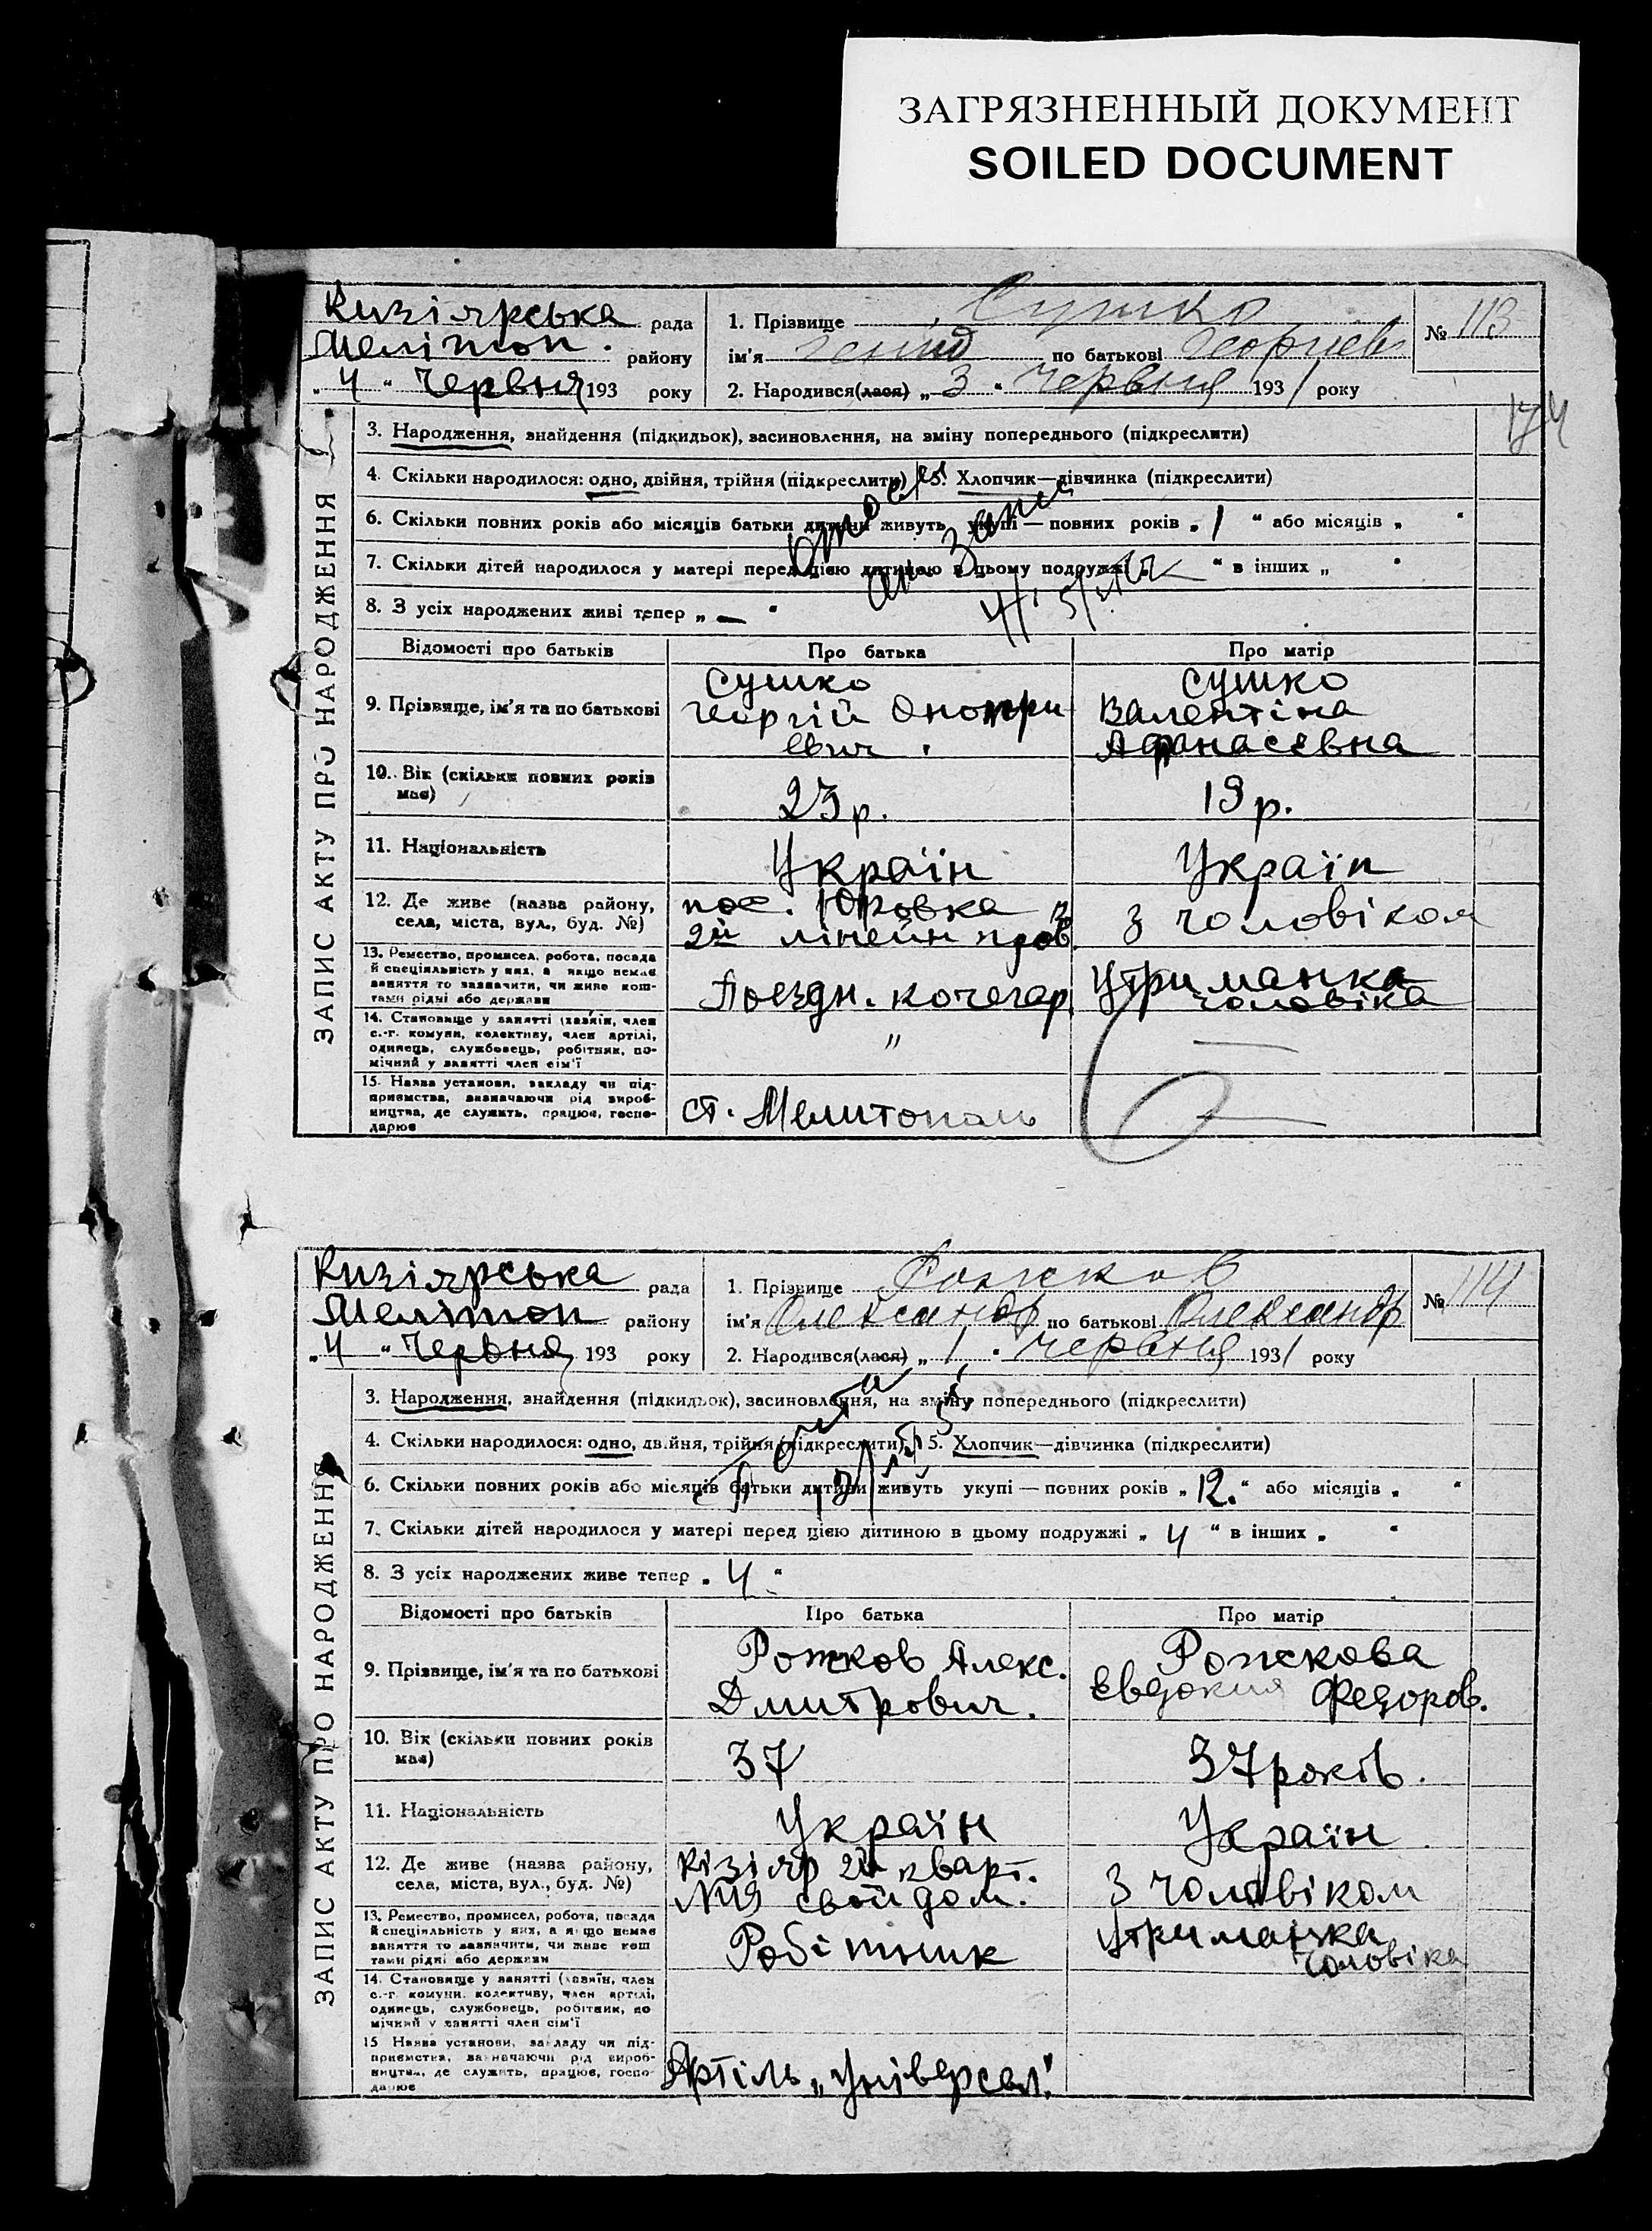 ЗАГРЯЗНЕННЫЙ ДОКУМЕНТ
SOILED DOCUMENT
Кизіярська рада
Мелітоп. району
„4“ Червня 193 року
1. Прізвище Сушко
ім'я по батькові Георгієв
2. Народився(лася) „3“ червня 1931 року
№ 113
174
ЗАПИС АКТУ ПРО НАРОДЖЕННЯ
3. Народження, знайдення (підкидьок), засиновлення, на зміну попереднього (підкреслити)
4. Скільки народилося: одно, двійня, трійня (підкреслити) 5. Хлопчик—дівчинка (підкреслити)
6. Скільки повних років або місяців батьки дитини живуть укупі — повних років „1“ або місяців „ “
7. Скільки дітей народилося у матері перед цією дитиною в цьому подружжі „—“ в інших „ “
8. З усіх народжених живі тепер „—“
Відомості про батьків
Про батька
Про матір
9. Прізвище, ім'я та по батькові
Сушко
Георгій Онопри
евич.
Сушко
Валентіна
Афанасєвна
10. Вік (скільки повних років має)
23р.
19р.
11. Національність
Україн
Україн
12. Де живе (назва району, села, міста, вул., буд. №)
пос. Юровка
2й лінейн пров.
З чоловіком
13. Ремество, промисел, робота, посада й спеціяльність у них, а якщо немає заняття то зазначити, чи живе коштами рідні або держави
Поездн. кочегар.
Утриманка
чоловіка
14. Становище у занятті (хазяїн, член с.-г. комуни, колективу, член артілі, одинець, службовець, робітник, помічний у занятті член сім'ї
"
—
15. Назва установи, закладу чи підприємства, визначаючи рід виробництва, де служить, працює, господарює
ст. Мелитополь
—
Кизіярська рада
Мелітоп району
„4“ Червня 193 року
1. Прізвище Рожков
ім'я Олександр по батькові Олександр
2. Народився(лася) „1“ червня 1931 року
№ 114
ЗАПИС АКТУ ПРО НАРОДЖЕННЯ
3. Народження, знайдення (підкидьок), засиновлення, на зміну попереднього (підкреслити)
4. Скільки народилося: одно, двійня, трійня (підкреслити) 5. Хлопчик—дівчинка (підкреслити)
6. Скільки повних років або місяців батьки дитини живуть укупі — повних років „12.“ або місяців „ “
7. Скільки дітей народилося у матері перед цією дитиною в цьому подружжі „4“ в інших „ “
8. З усіх народжених живе тепер „4“
Відомості про батьків
Про батька
Про матір
9. Прізвище, ім'я та по батькові
Рожков Алекс.
Дмитрович.
Рожкова
Евдокия Федоров.
10. Вік (скільки повних років має)
37
37 років.
11. Національність
Україн
Україн
12. Де живе (назва району, села, міста, вул., буд. №)
Кізіяр 2й кварт.
№19 свой дом.
З чоловіком
13. Ремество, промисел, робота, посада й спеціяльність у них, а якщо немає заняття то зазначити, чи живе коштами рідні або держави
Робітник
Утриманка
чоловіка
14. Становище у занятті (хазяїн, член с.-г. комуни, колективу, член артілі, одинець, службовець, робітник, помічний у занятті член сім'ї
15 Назва установи, закладу чи підприємства, визначаючи рід виробництва, де служить, працює, господарює
Артіль „Універсал“.